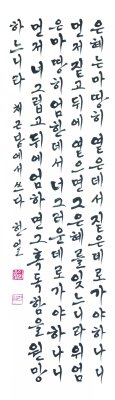 은혜는마땅히옅은데서짙은데로가야하나니
먼저짙고뒤에옅으면그은혜를잊느니라위엄
은마땅히엄한데서너그러운데로가야하나니
먼저너그럽고뒤에엄하면그혹독함을원망
하느니라 채근담에서쓰다 한일